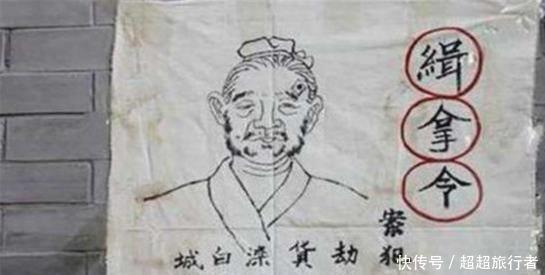 緝拿令
案犯
劫貨滦白城
快传号 / 超超旅行者